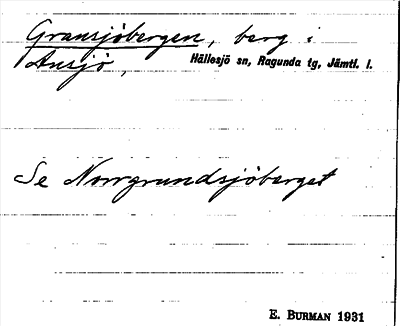 Gransjöbergen, berg i
Ansjö, Hällesjö sn, Ragunda tg, Jämtl. l.
Se Norrgrundsjöberget
E. BURMAN 1931